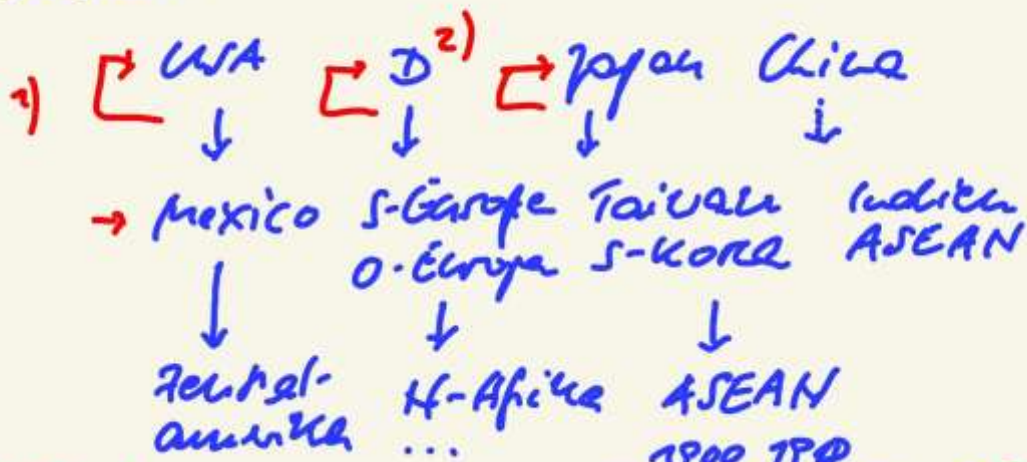 1) USA D 2) Japan China
→ Mexico S-Europa Taiwan Indien
O-Europa S-Korea ASEAN
Zentral- N-Afrika ASEAN
amerika ...